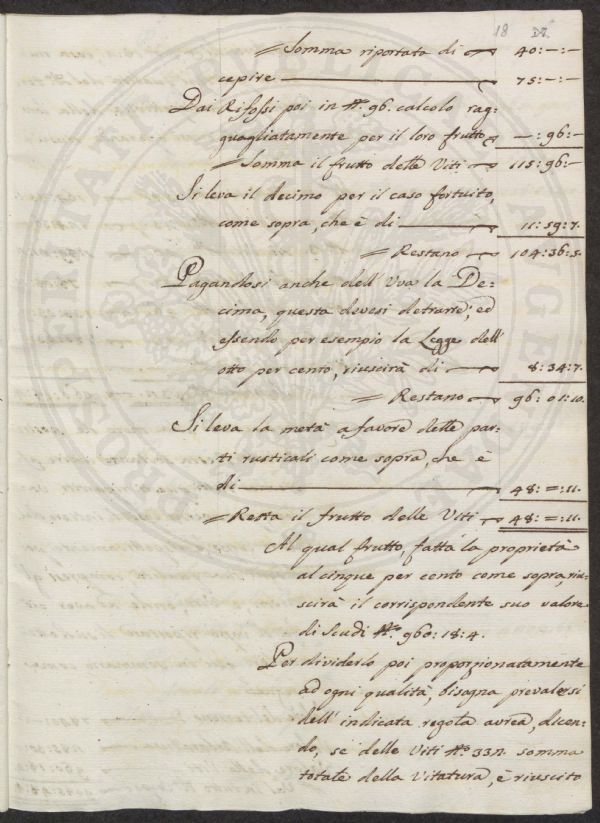 18 DZ.
= Somma riportata di — 40:—:—
cepire — 75:—:—
Dai Rifossi poi in N.° 96. calcolo rag-
guagliatamente per il loro frutto —:96:—
= Somma il frutto delle Viti — 115:96:—
Si leva il decimo per il caso fortuito,
come sopra, che è di — 11:59:7.
= Restano — 104:36:5.
Pagandosi anche dell'Uva la De:
cima, questa devesi detrarre; ed
essendo per esempio la Legge dell'
otto per cento, riuscirà di — 8:34:7.
= Restano — 96:01:10.
Si leva la metà a favore delle par-
ti rusticali come sopra, che è
di — 48:=:11.
= Resta il frutto delle Viti — 48:=:11.
Al qual frutto, fatta la proprietà
al cinque per cento come sopra, riu-
scirà il corrispondente suo valore
di Scudi N.° 960:18:4.
Per dividerlo poi proporzionatamente
ad ogni qualità, bisogna prevalersi
dell'indicata regola aurea, dicen-
do, se delle Viti N.° somma
totale della Vitatura, è riuscito
PROSPERITATI PUBLICAE AUGENDAE